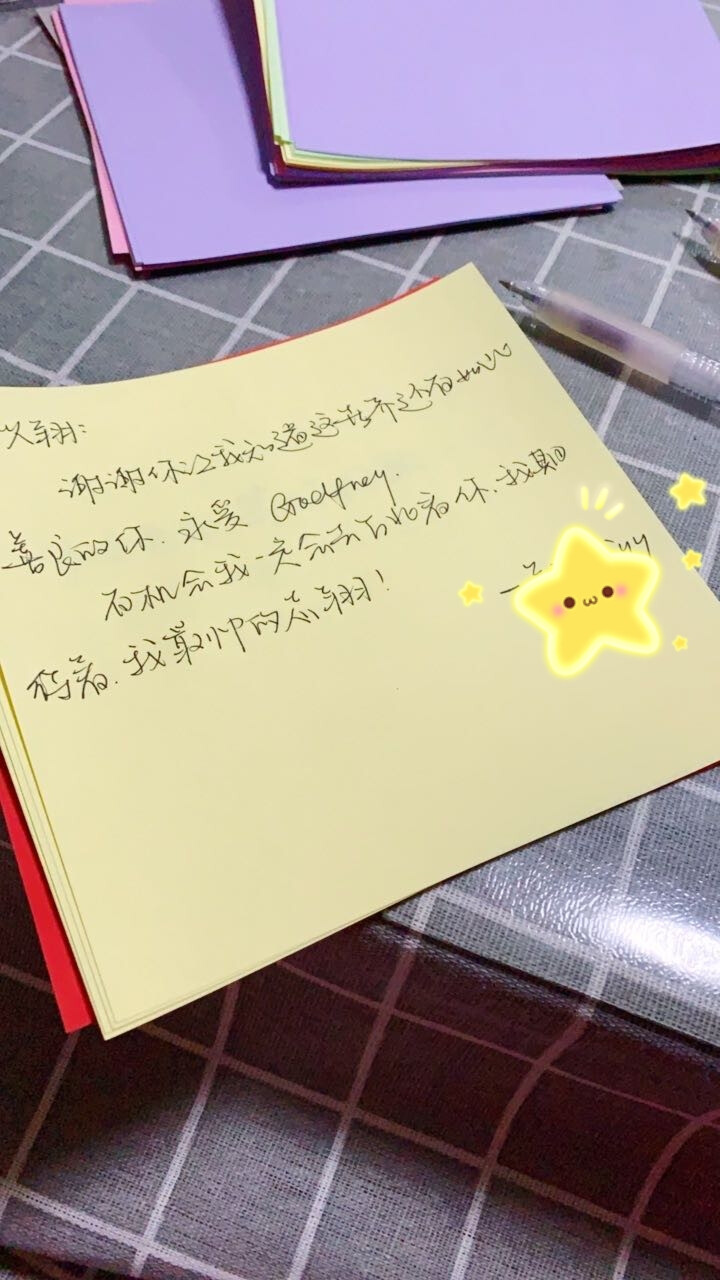 以翔:
谢谢你让我知道这世界还有如此
善良的你.永爱 Godfrey.
有机会我一定会去台北看你.我期
待着.我最帅的以翔!